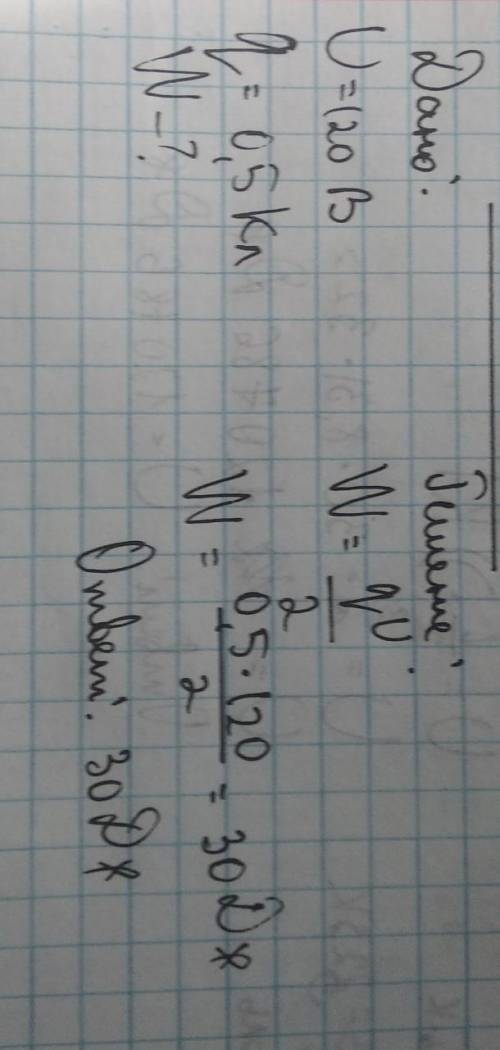 Дано:
U = 120 В
q = 0,5 Кл
W - ?
Решение:
W = qU / 2
W = 0,5 · 120 / 2 = 30 Дж
Ответ: 30 Дж